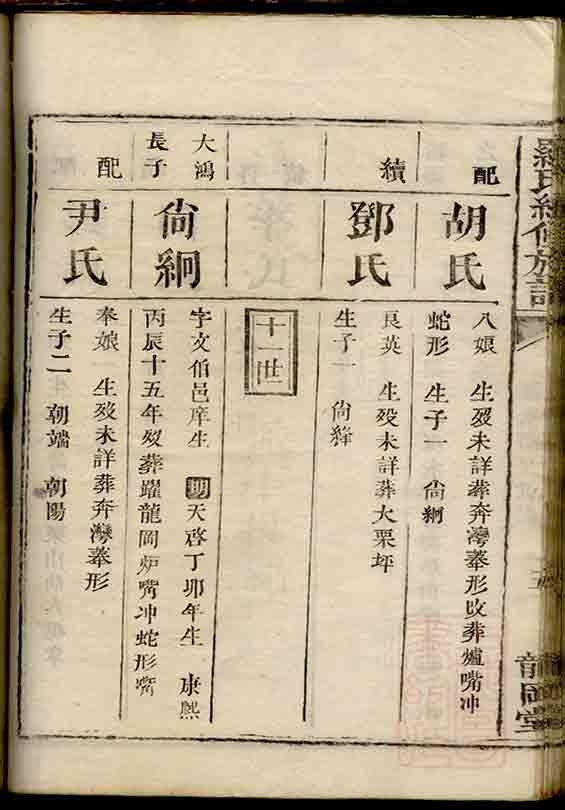 羅氏續修族譜
龍岡堂
配
胡氏
八娘 生殁未詳葬奔灣墓形改葬爐嘴冲
蛇形 生子一 尙絅
續
鄧氏
良英 生殁未詳葬大栗坪
生子一 尙絳
十一世
大鴻
長子
尙絅
字文伯邑庠生 明天啓丁卯年生 康熙
丙辰十五年殁葬躍龍岡炉嘴冲蛇形嘴
配
尹氏
奉娘 生殁未詳葬奔灣墓形
生子二 朝端 朝陽